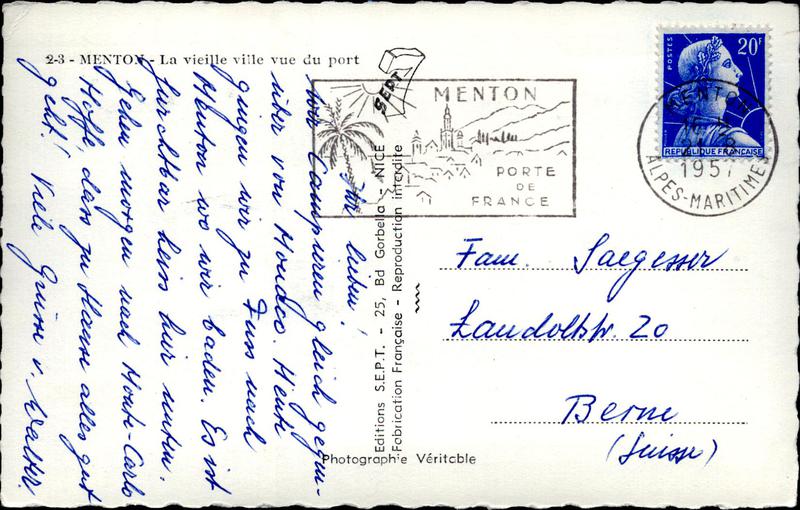 2-3 - MENTON - La vieille ville vue du port
SEPT
MENTON
PORTE
DE
FRANCE
POSTES
20F
REPUBLIQUE FRANÇAISE
MENTON
1957
ALPES-MARITIMES
Ihr lieben!
wir Campieren gleich gegen-
über von Monaco. Heute
gingen wir zu Fuss nach
Menton wo wir baden. Es ist
furchtbar heiss hier unten.
Gehen morgen nach Monte-Carlo
Hoffe, dass zu Hause alles gut
geht! Viele Grüsse v. Walter.
Editions S.E.P.T. - 25, Bd Gorbella - NICE
Fabrication Française - Reproduction interdite
Photographie Véritable
Fam. Saegesser
Landoltstr. 20
Berne
(Suisse)